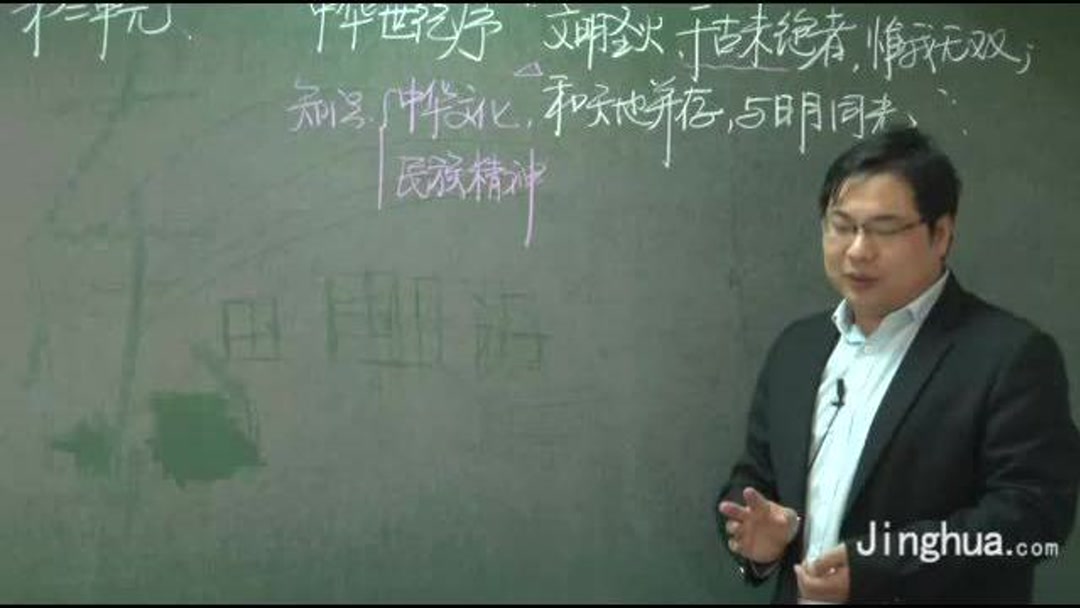 第三单元、 中华世纪序 "文明圣火,千古未绝者,惟我无双;
知识 中华文化, 和天地并存,与日月同光、"
民族精神
Jinghua.com